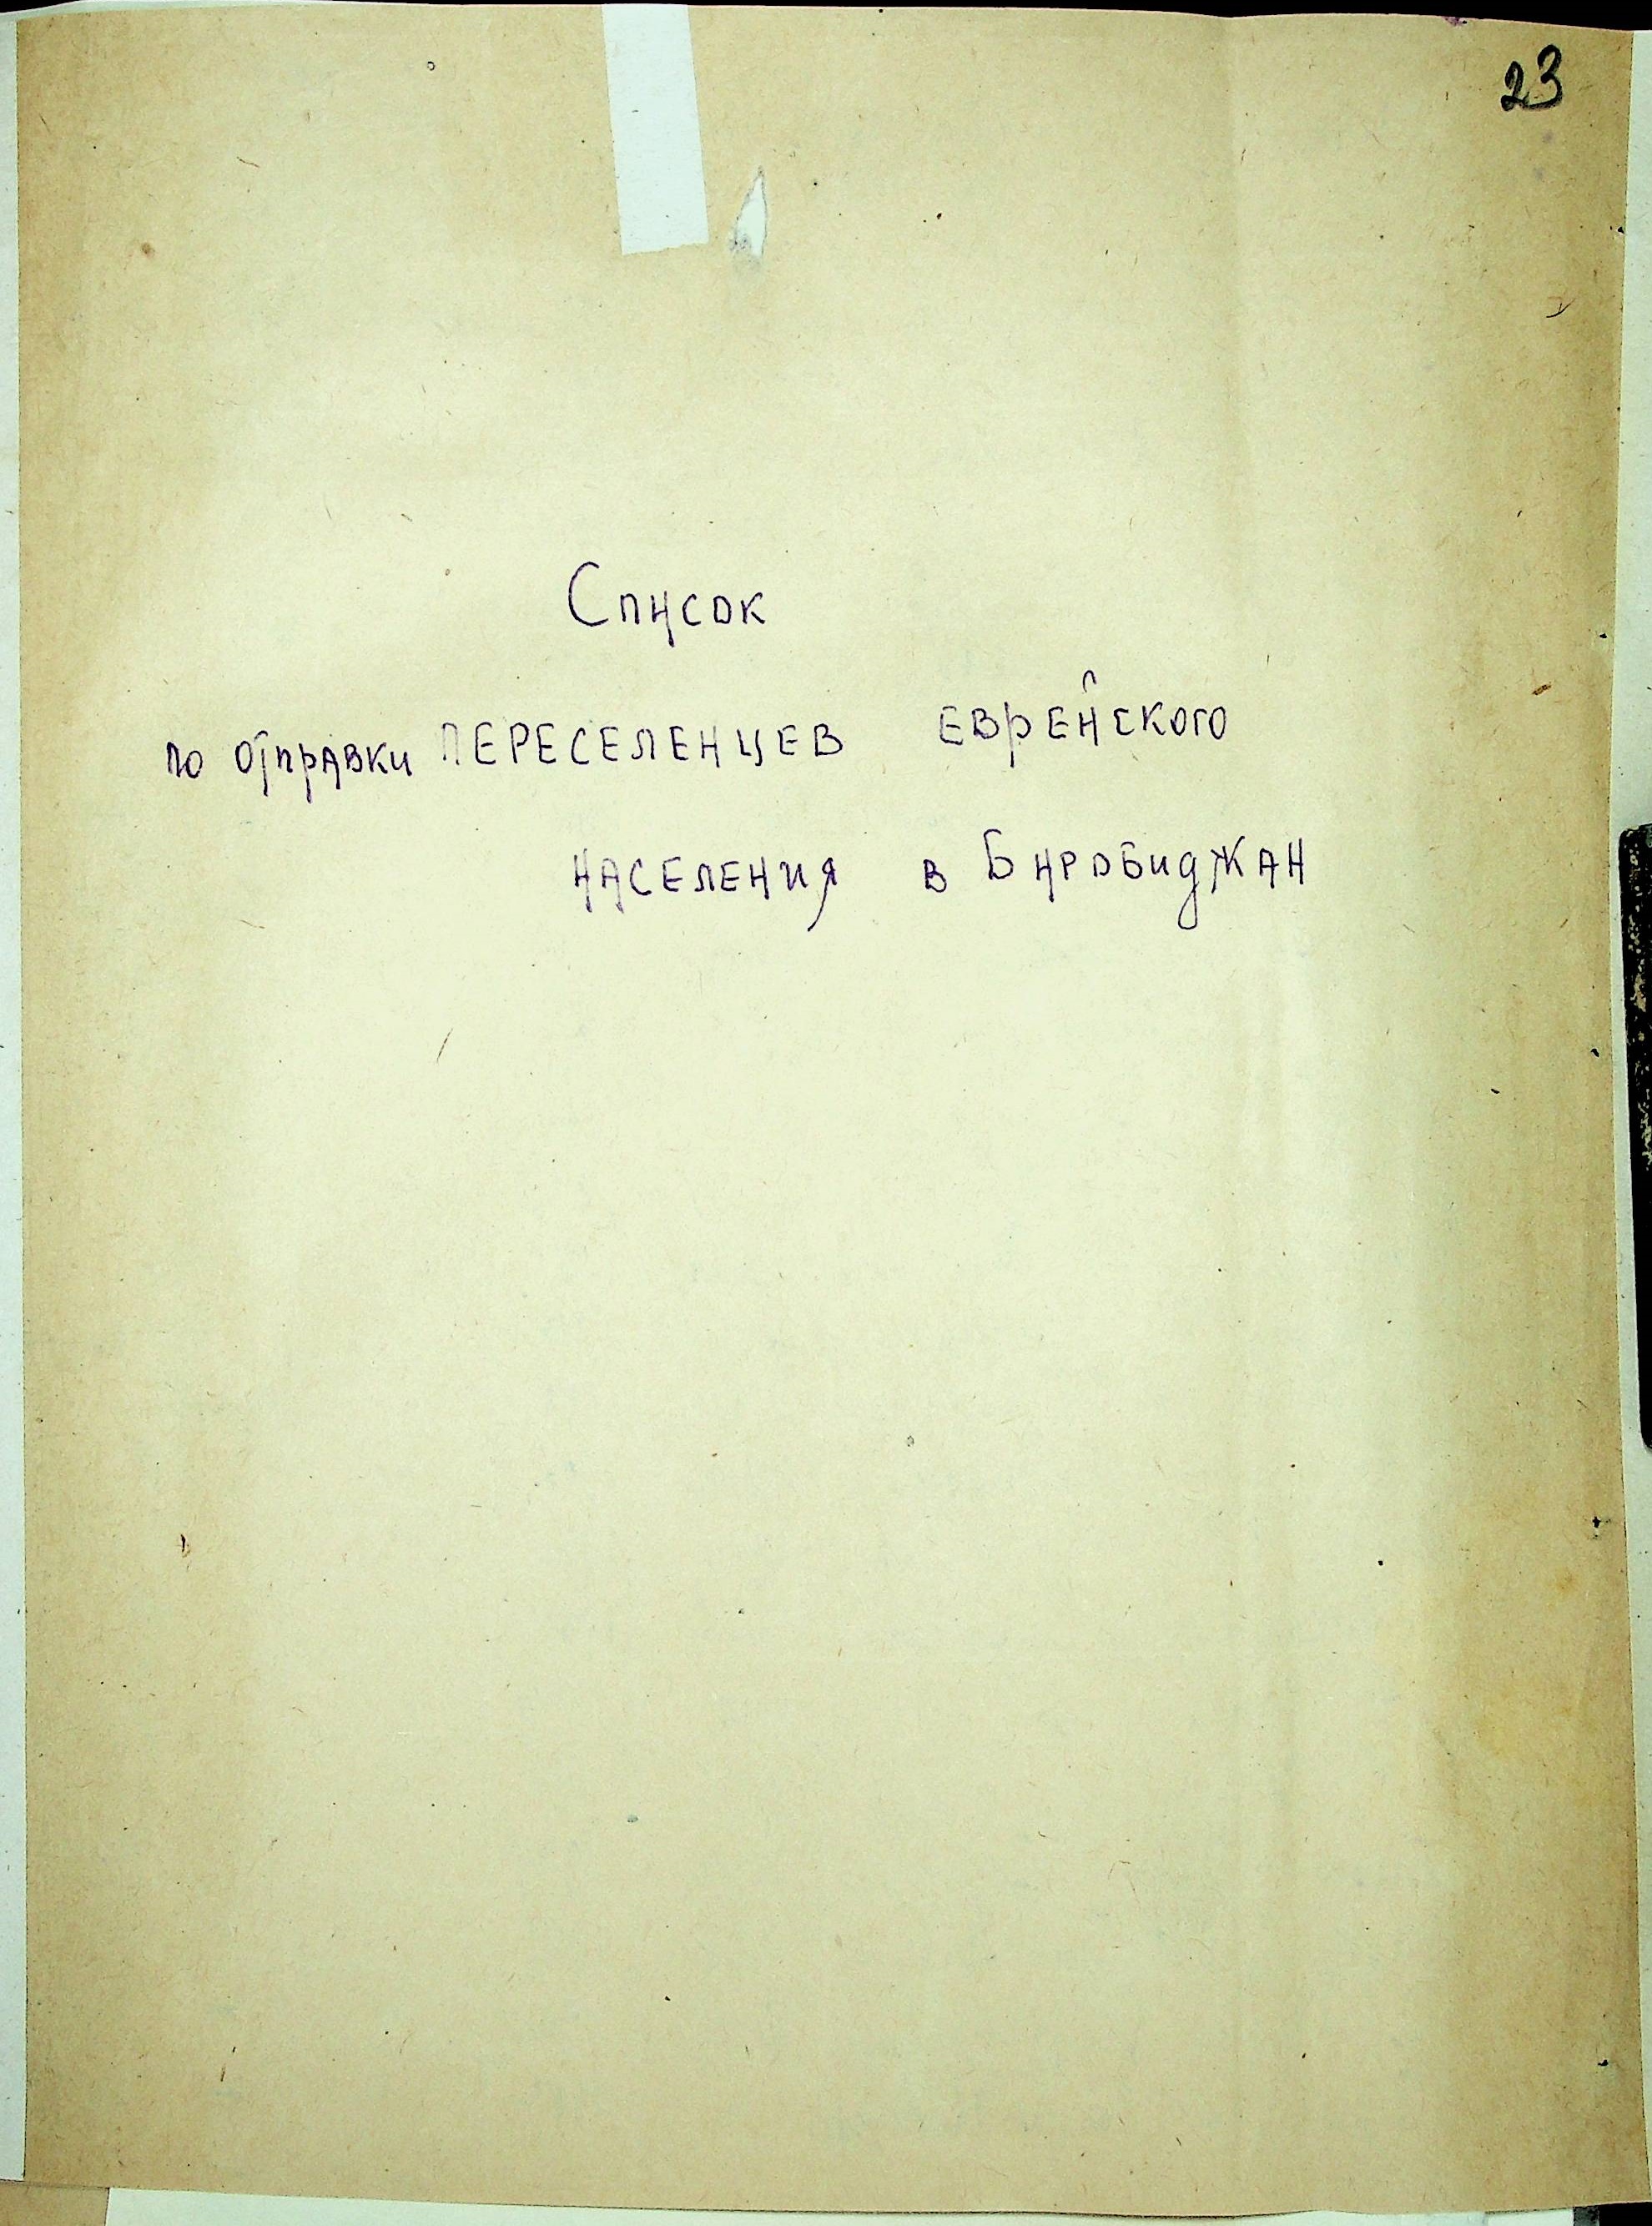 23
Список
по отправки ПЕРЕСЕЛЕНЦЕВ ЕВРЕЙСКОГО
НАСЕЛЕНИЯ в БИРОБИДЖАН